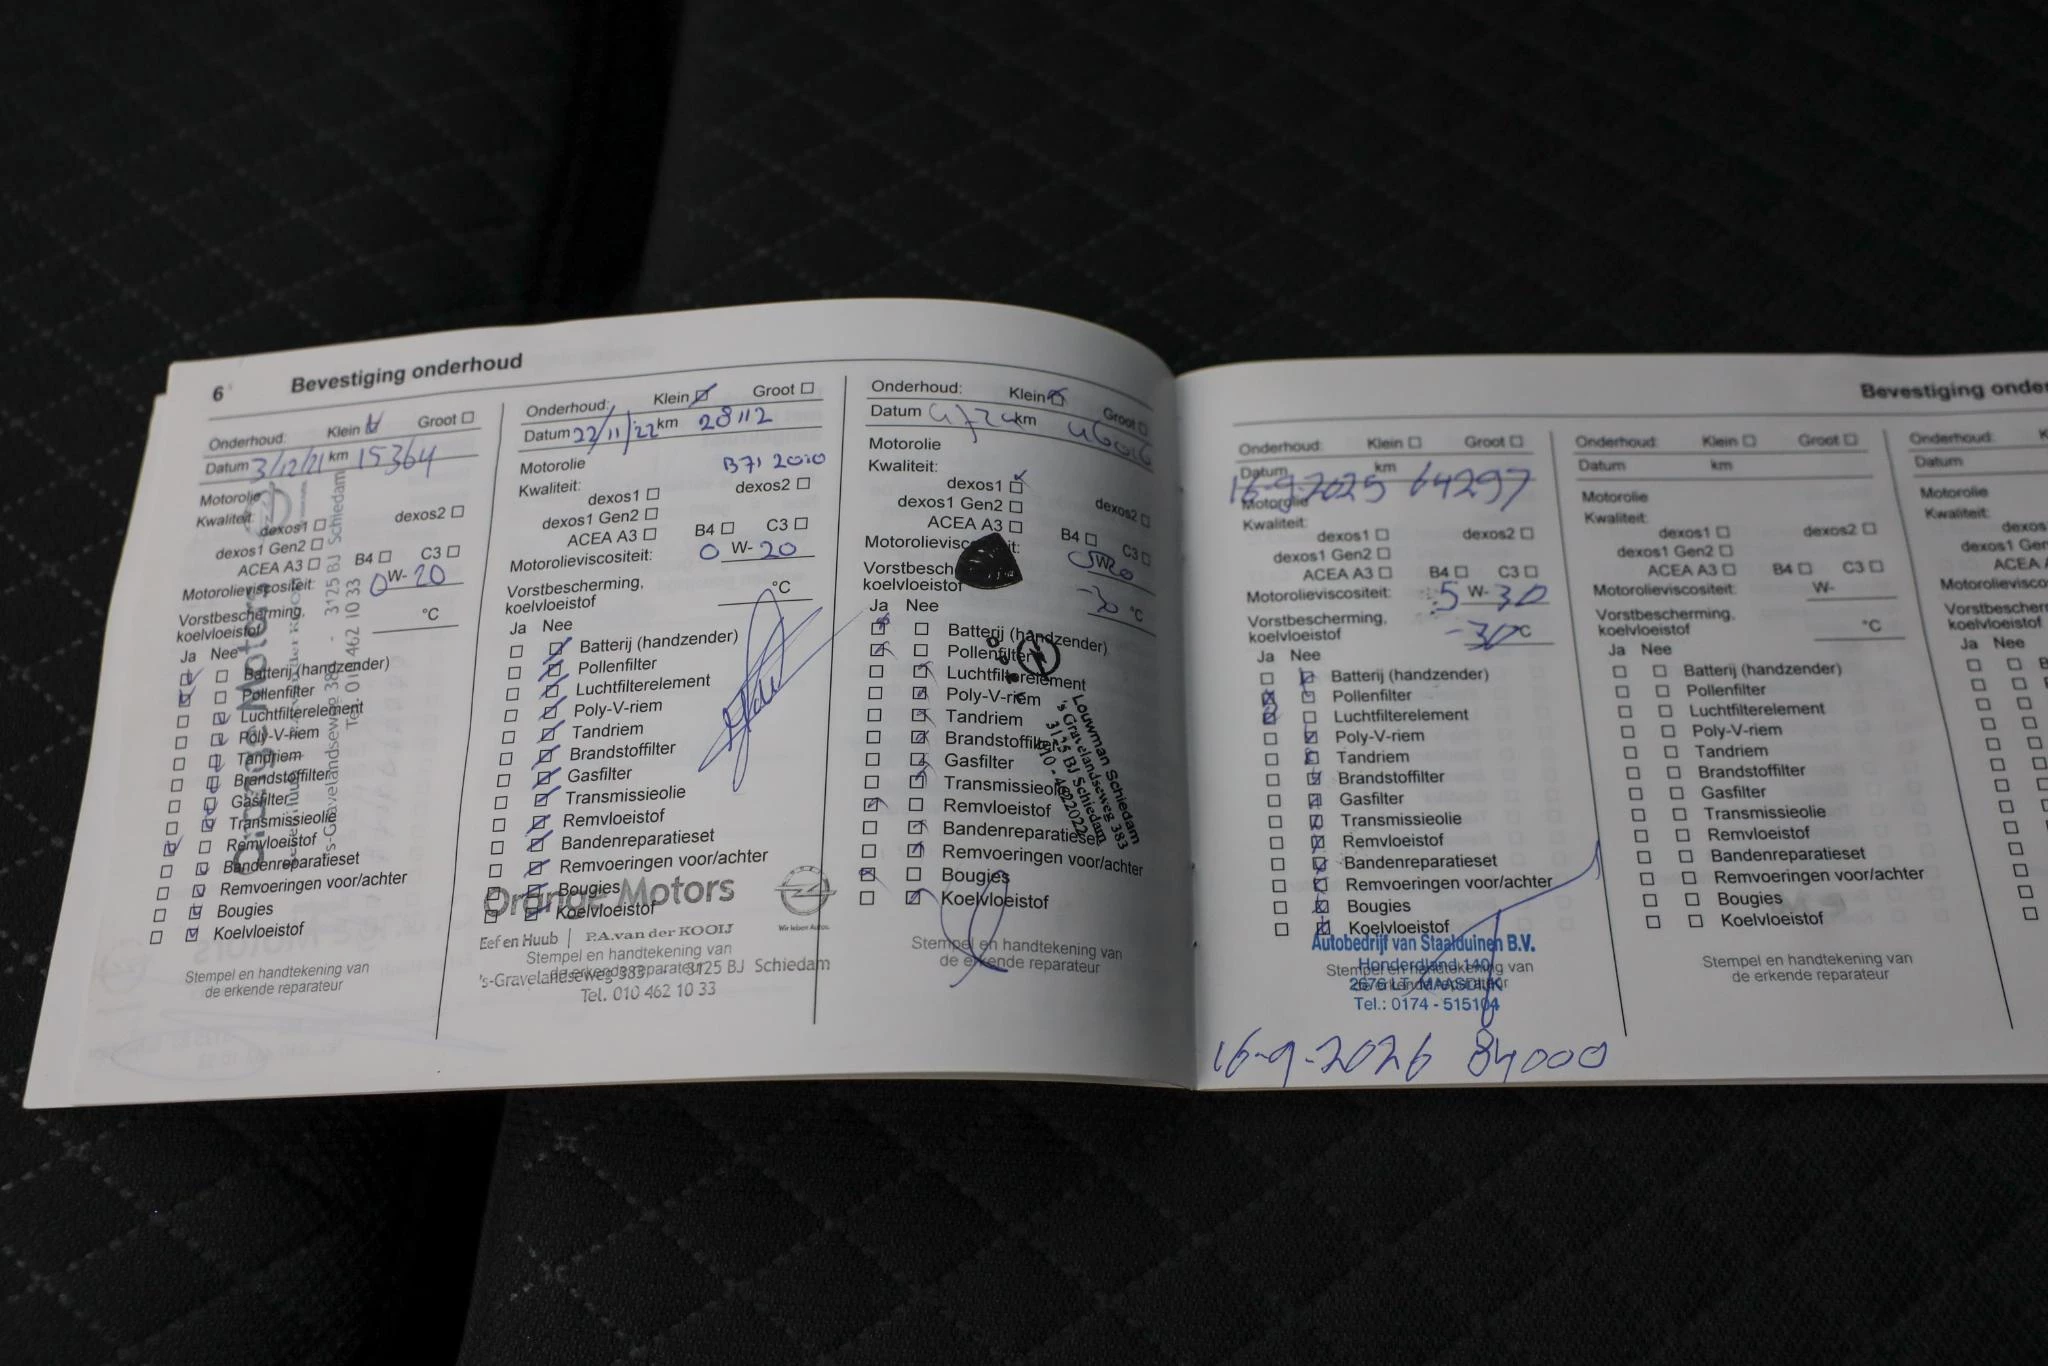 6 Bevestiging onderhoud
Onderhoud: Klein Groot
Datum 3/12/21 km 15364
Motorolie
Kwaliteit:
dexos1 dexos2
dexos1 Gen2
ACEA A3 B4 C3
Motorolieviscositeit: 0 W- 20
Vorstbescherming,
koelvloeistof °C
Ja Nee
Batterij (handzender)
Pollenfilter
Luchtfilterelement
Poly-V-riem
Tandriem
Brandstoffilter
Gasfilter
Transmissieolie
Remvloeistof
Bandenreparatieset
Remvoeringen voor/achter
Bougies
Koelvloeistof
Stempel en handtekening van
de erkende reparateur
Orange Motors
's-Gravelandseweg 383 - 3125 BJ Schiedam
Tel. 010 462 10 33
Onderhoud: Klein Groot
Datum 22/11/22 km 28112
Motorolie B71 2010
Kwaliteit:
dexos1 dexos2
dexos1 Gen2
ACEA A3 B4 C3
Motorolieviscositeit: 0 W- 20
Vorstbescherming,
koelvloeistof °C
Ja Nee
Batterij (handzender)
Pollenfilter
Luchtfilterelement
Poly-V-riem
Tandriem
Brandstoffilter
Gasfilter
Transmissieolie
Remvloeistof
Bandenreparatieset
Remvoeringen voor/achter
Bougies
Koelvloeistof
Orange Motors
Eef en Huub | P.A. van der KOOIJ
Wir leben Autos.
Stempel en handtekening van
de erkende reparateur
's-Gravelandseweg 383 3125 BJ Schiedam
Tel. 010 462 10 33
Onderhoud: Klein Groot
Datum km
Motorolie
Kwaliteit:
dexos1 dexos2
dexos1 Gen2
ACEA A3 B4 C3
Motorolieviscositeit: W-
Vorstbescherming,
koelvloeistof -30 °C
Ja Nee
Batterij (handzender)
Pollenfilter
Luchtfilterelement
Poly-V-riem
Tandriem
Brandstoffilter
Gasfilter
Transmissieolie
Remvloeistof
Bandenreparatieset
Remvoeringen voor/achter
Bougies
Koelvloeistof
Louwman Schiedam
's Gravelandseweg 383
3125 BJ Schiedam
010 - 4622022
Stempel en handtekening van
de erkende reparateur
Bevestiging onder
Onderhoud: Klein Groot
Datum km
16-9-2025 64297
Motorolie
Kwaliteit:
dexos1 dexos2
dexos1 Gen2
ACEA A3 B4 C3
Motorolieviscositeit: 5 W- 30
Vorstbescherming,
koelvloeistof -30 °C
Ja Nee
Batterij (handzender)
Pollenfilter
Luchtfilterelement
Poly-V-riem
Tandriem
Brandstoffilter
Gasfilter
Transmissieolie
Remvloeistof
Bandenreparatieset
Remvoeringen voor/achter
Bougies
Koelvloeistof
Autobedrijf van Staalduinen B.V.
Honderdland 140
2676 LT MAASDIJK
Tel.: 0174 - 515104
Stempel en handtekening van
de erkende reparateur
16-9-2026 84000
Onderhoud: Klein Groot
Datum km
Motorolie
Kwaliteit:
dexos1 dexos2
dexos1 Gen2
ACEA A3 B4 C3
Motorolieviscositeit: W-
Vorstbescherming,
koelvloeistof °C
Ja Nee
Batterij (handzender)
Pollenfilter
Luchtfilterelement
Poly-V-riem
Tandriem
Brandstoffilter
Gasfilter
Transmissieolie
Remvloeistof
Bandenreparatieset
Remvoeringen voor/achter
Bougies
Koelvloeistof
Stempel en handtekening van
de erkende reparateur
Onderhoud: K
Datum
Motorolie
Kwaliteit:
dexos
dexos1 Gen
ACEA
Motorolieviscos
Vorstbescherm
koelvloeistof
Ja Nee